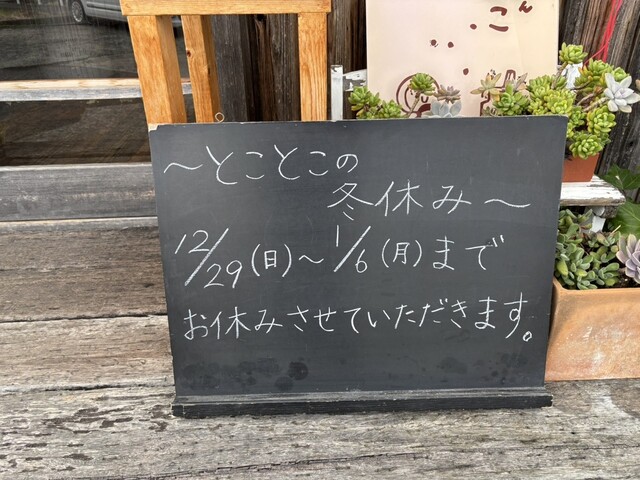 ～とことこの
冬休み～
12/29(日)～1/6(月)まで
お休みさせていただきます。